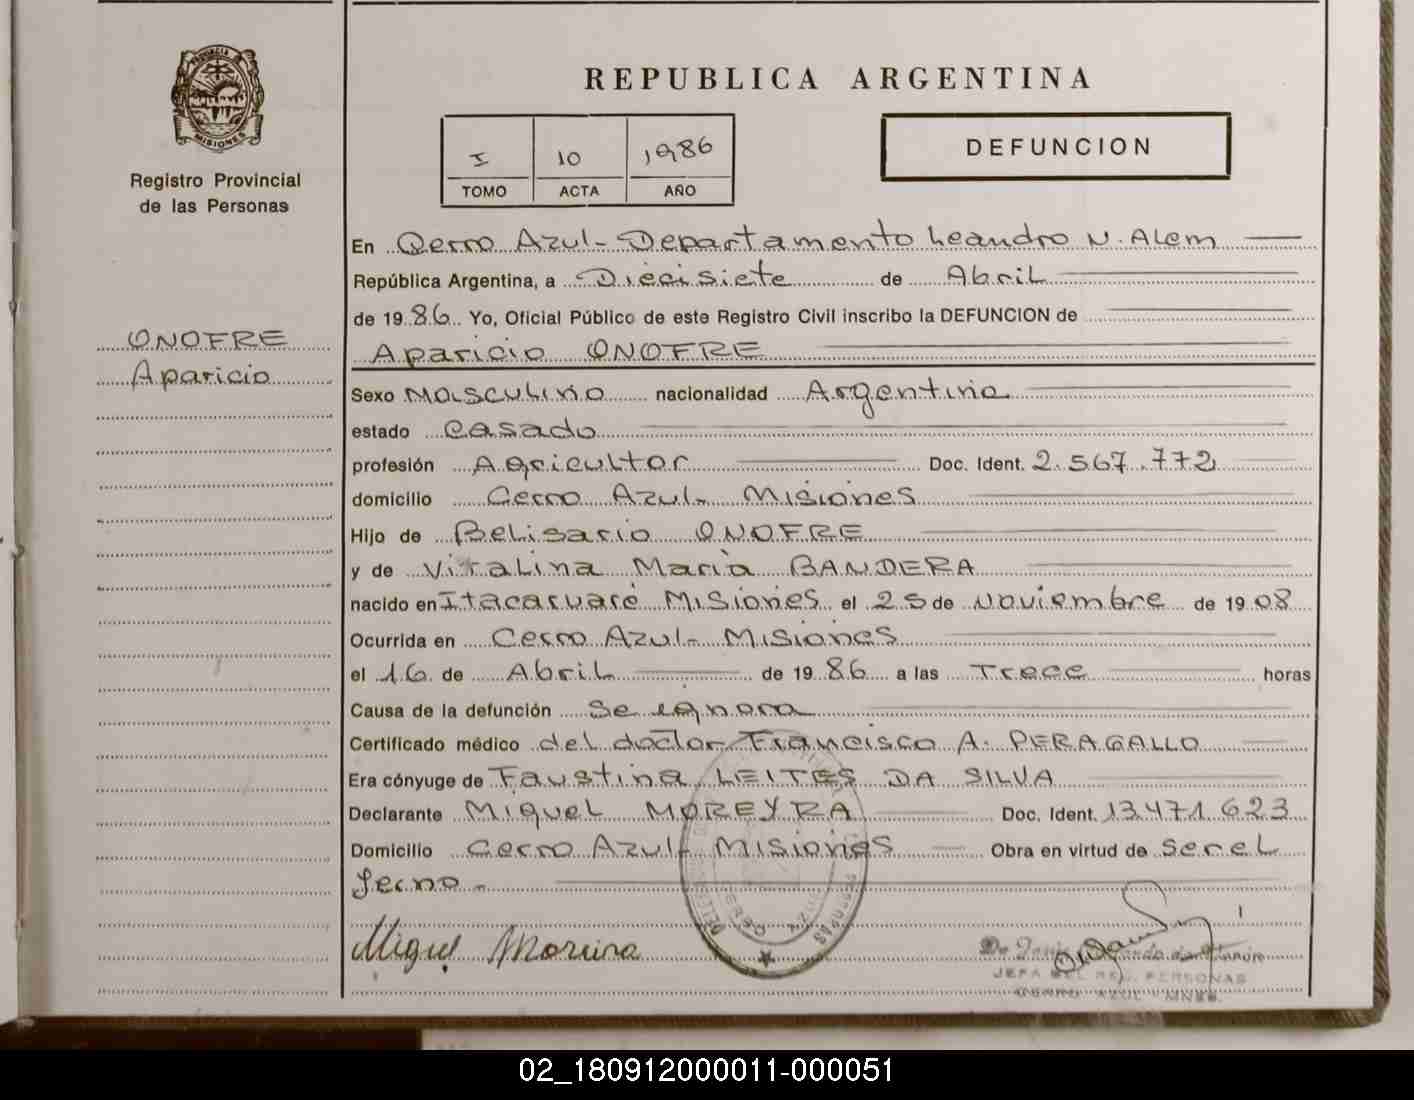 PROVINCIA DE
MISIONES
Registro Provincial
de las Personas
ONOFRE
Aparicio
REPUBLICA ARGENTINA
I 10 1986
TOMO ACTA AÑO
DEFUNCION
En Cerro Azul - Departamento Leandro N. Alem
República Argentina, a Diecisiete de Abril
de 1986 Yo, Oficial Público de este Registro Civil inscribo la DEFUNCION de
Aparicio ONOFRE
Sexo Masculino nacionalidad Argentina
estado Casado
profesión Agricultor Doc. Ident. 2.567.772
domicilio Cerro Azul - Misiones
Hijo de Belisario ONOFRE
y de Vitalina Maria BANDERA
nacido en Itacaruaré Misiones el 25 de Noviembre de 1908
Ocurrida en Cerro Azul - Misiones
el 16 de Abril de 1986 a las Trece horas
Causa de la defunción Se ignora
Certificado médico del doctor Francisco A. PERAGALLO
Era cónyuge de Faustina LEITES DA SILVA
Declarante Miguel MOREYRA Doc. Ident. 13.471.623
Domicilio Cerro Azul - Misiones Obra en virtud de Ser el
Yerno -
Miguel Moreira
JEFA DEL REG. PERSONAS
CERRO AZUL MNES.
CERRO AZUL
02_180912000011-000051